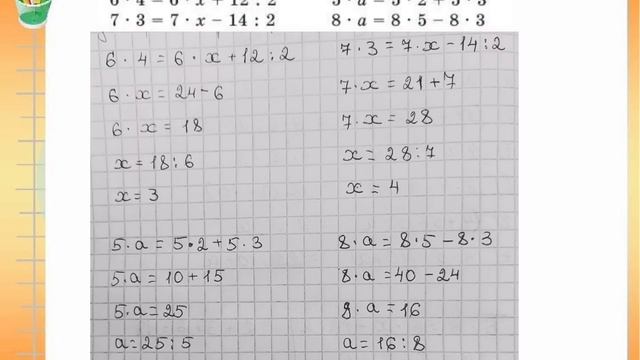 6 · 4 = 6 · x + 12 : 2
5 · a = 5 · 2 + 5 · 3
7 · 3 = 7 · x − 14 : 2
8 · a = 8 · 5 − 8 · 3
6 · 4 = 6 · x + 12 : 2
6 · x = 24 − 6
6 · x = 18
x = 18 : 6
x = 3
7 · 3 = 7 · x − 14 : 2
7 · x = 21 + 7
7 · x = 28
x = 28 : 7
x = 4
5 · a = 5 · 2 + 5 · 3
5 · a = 10 + 15
5 · a = 25
a = 25 : 5
8 · a = 8 · 5 − 8 · 3
8 · a = 40 − 24
8 · a = 16
a = 16 : 8